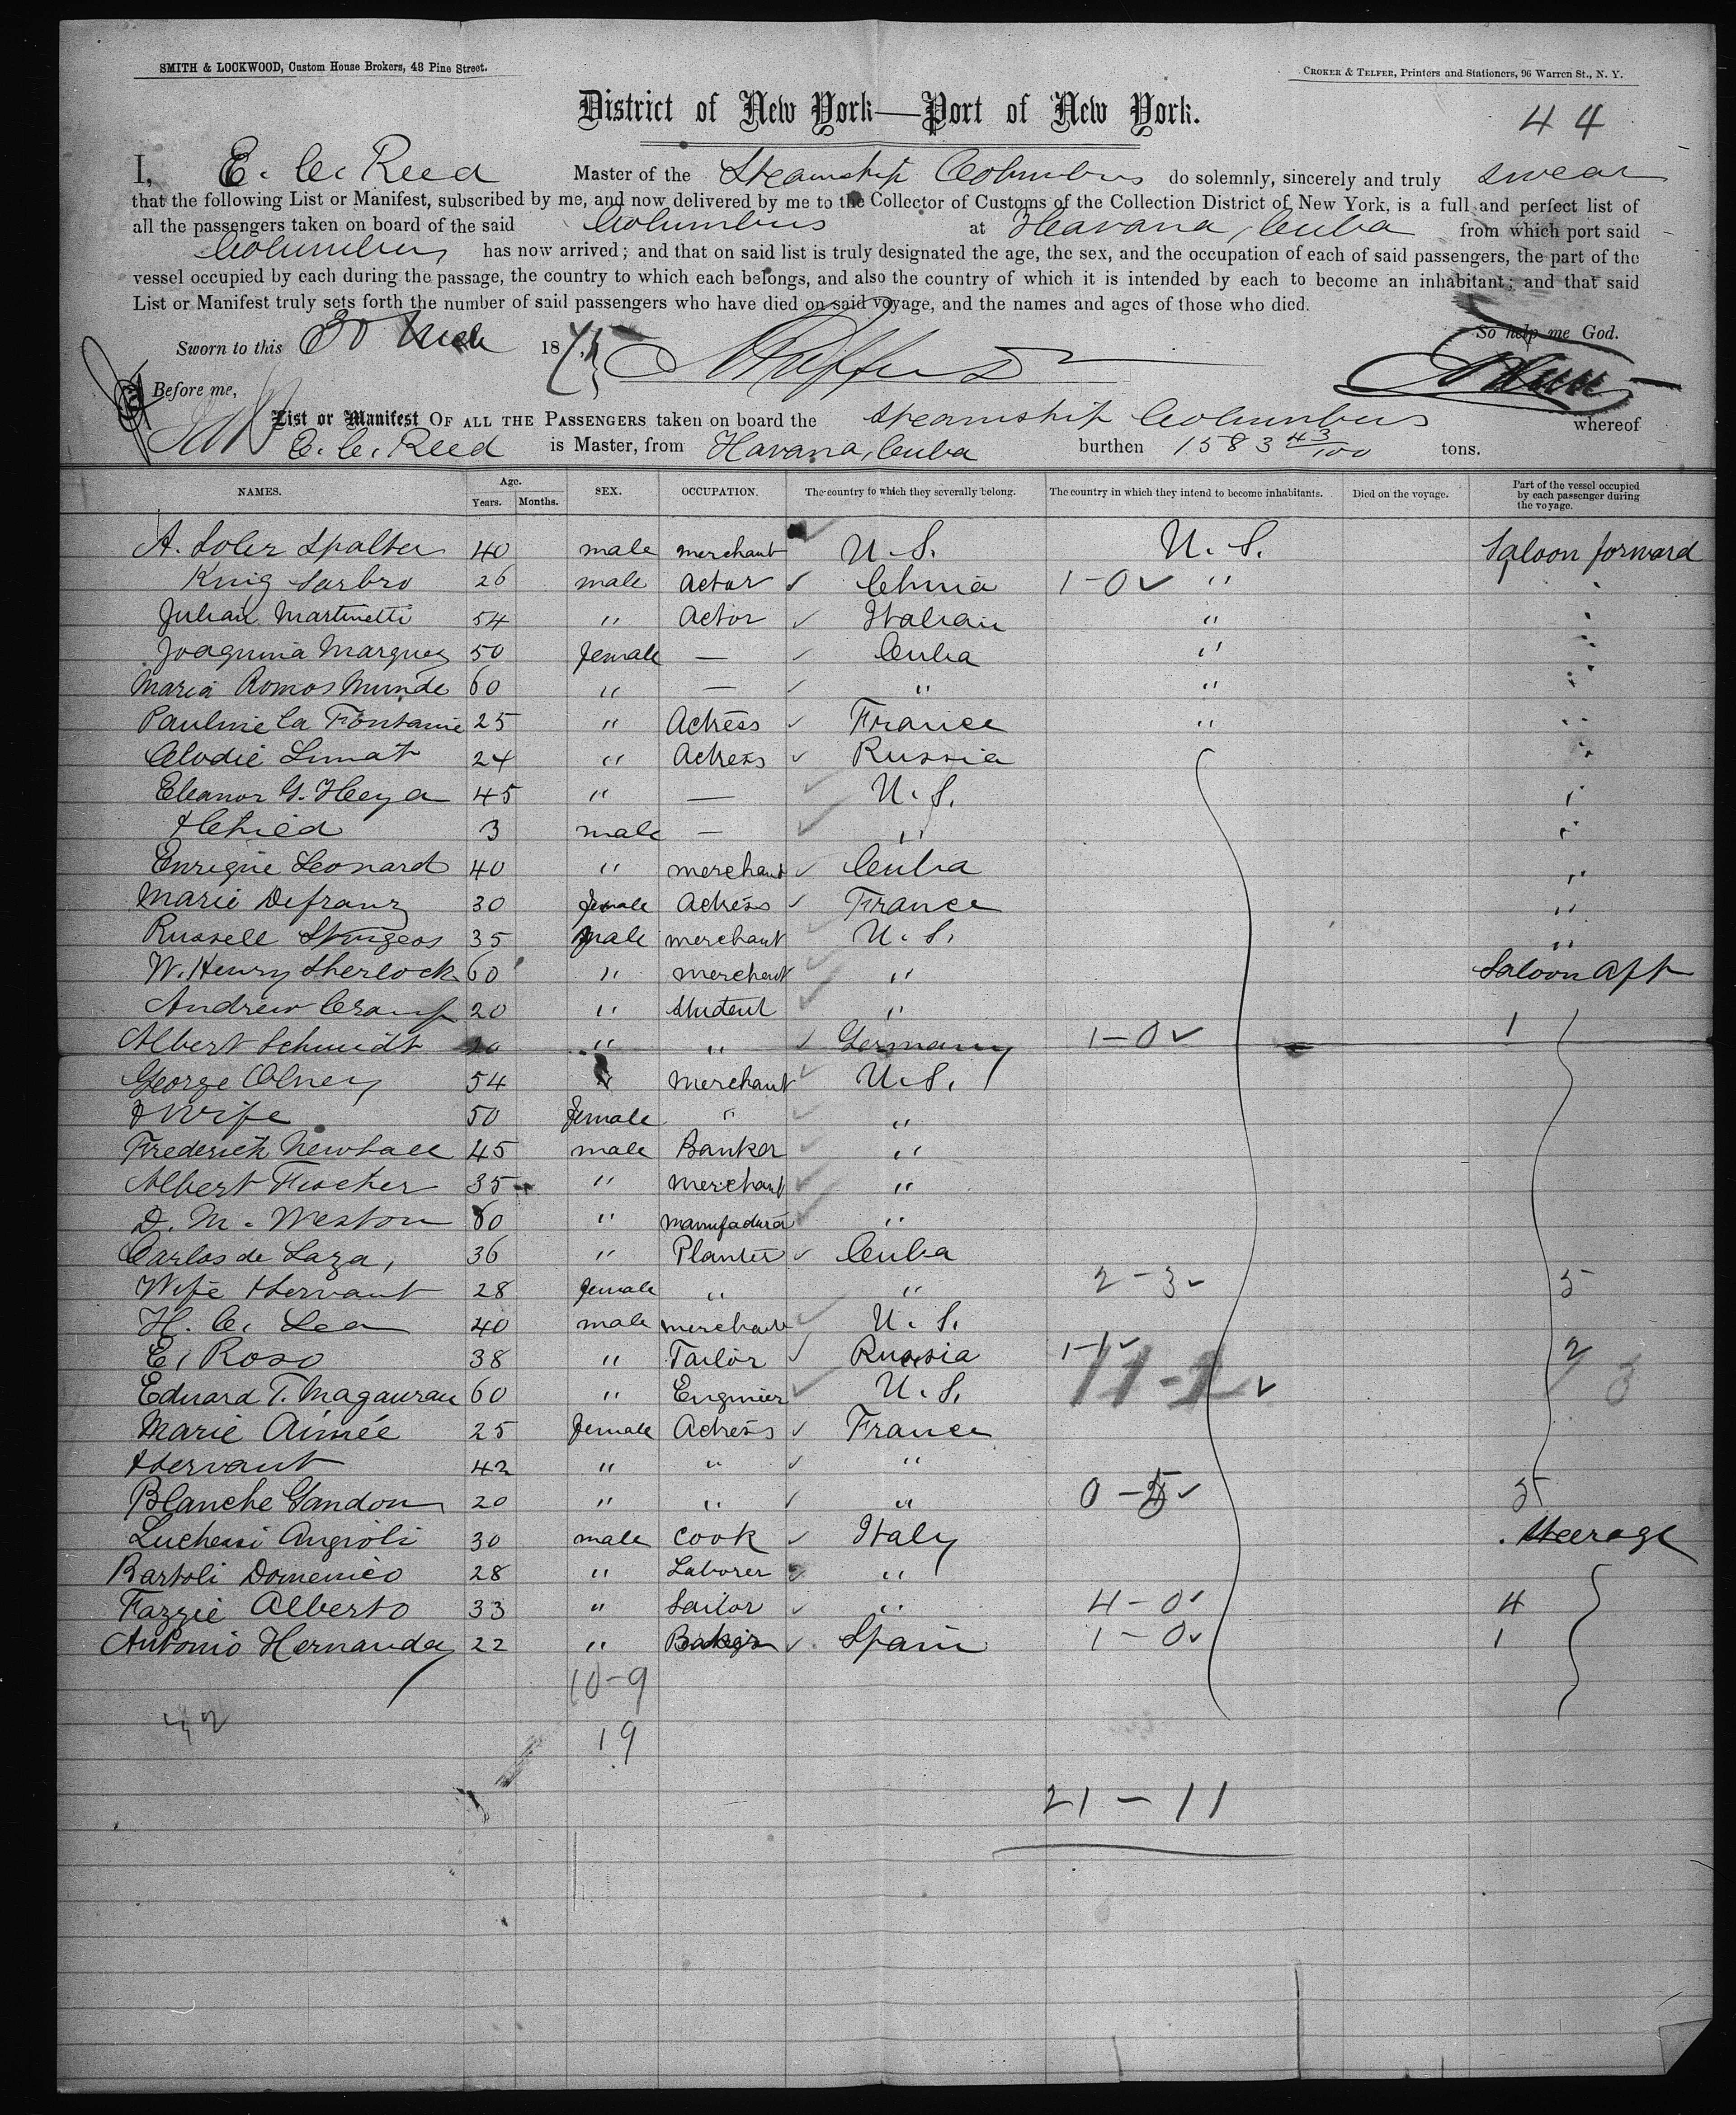 SMITH & LOCKWOOD, Custom House Brokers, 48 Pine Street.
CROKER & TELFER, Printers and Stationers, 96 Warren St., N. Y.
District of New York—Port of New York.
44
I, E. C. Reed Master of the Steamship Columbus do solemnly, sincerely and truly swear
that the following List or Manifest, subscribed by me, and now delivered by me to the Collector of Customs of the Collection District of New York, is a full and perfect list of
all the passengers taken on board of the said Columbus at Havana, Cuba from which port said
Columbus has now arrived; and that on said list is truly designated the age, the sex, and the occupation of each of said passengers, the part of the
vessel occupied by each during the passage, the country to which each belongs, and also the country of which it is intended by each to become an inhabitant; and that said
List or Manifest truly sets forth the number of said passengers who have died on said voyage, and the names and ages of those who died.
So help me God.
Sworn to this 30 Mch 187
Before me,
List or Manifest OF ALL THE PASSENGERS taken on board the Steamship Columbus whereof
E. C. Reed is Master, from Havana, Cuba burthen 1583 43/100 tons.
NAMES. Age. Years. Months. SEX. OCCUPATION. The country to which they severally belong. The country in which they intend to become inhabitants. Died on the voyage. Part of the vessel occupied by each passenger during the voyage.
A. Soler Spalter 40 male merchant U. S. U. S. Saloon forward
King Sarbro 26 male actor ✓ China 1-0 ✓ " "
Julian Martinetti 54 " Actor ✓ Italian " "
Joaquina Marquez 50 female — ✓ Cuba " "
Maria Romos Munde 60 " — ✓ " " "
Pauline La Fontaine 25 " Actress ✓ France " "
Alodie Limat 24 " Actress ✓ Russia "
Eleanor G. Heeya 45 " — ✓ U. S. "
& Child 3 male — ✓ " "
Enrique Leonard 40 " merchant ✓ Cuba "
Marie Defranz 30 female Actress ✓ France "
Russell Sturges 35 male merchant ✓ U. S. "
W. Henry Sherlock 60 " merchant ✓ " Saloon Aft
Andrew Cramp 20 " Student ✓ "
Albert Schmidt 20 " " ✓ Germany 1-0 ✓ 1
George Olney 54 " merchant ✓ U. S.
& Wife 50 female " ✓ "
Frederick Newhall 45 male Banker ✓ "
Albert Fischer 35 " Merchant ✓ "
D. M. Weston 60 " manufacturer ✓ "
Carlos de Laza, 36 " Planter ✓ Cuba
Wife & Servant 28 female " " 2-3 ✓ 5
H. C. Lea 40 male merchant ✓ U. S.
E. Roso 38 " Tailor ✓ Russia 1-1 ✓ 2
Edward T. Magauran 60 " Engineer ✓ U. S. ✓ 3
Marie Aimée 25 female Actress ✓ France
& Servant 42 " " ✓ "
Blanche Gandon 20 " " ✓ " 0-5 ✓ 5
Luchessi Angioli 30 male cook ✓ Italy Steerage
Bartoli Domenico 28 " Laborer ✓ "
Fazzie Alberto 33 " Sailor ✓ " 4-0 ✓ 4
Antonio Hernandez 22 " Baker ✓ Spain 1-0 ✓ 1
10-9
19
21-11